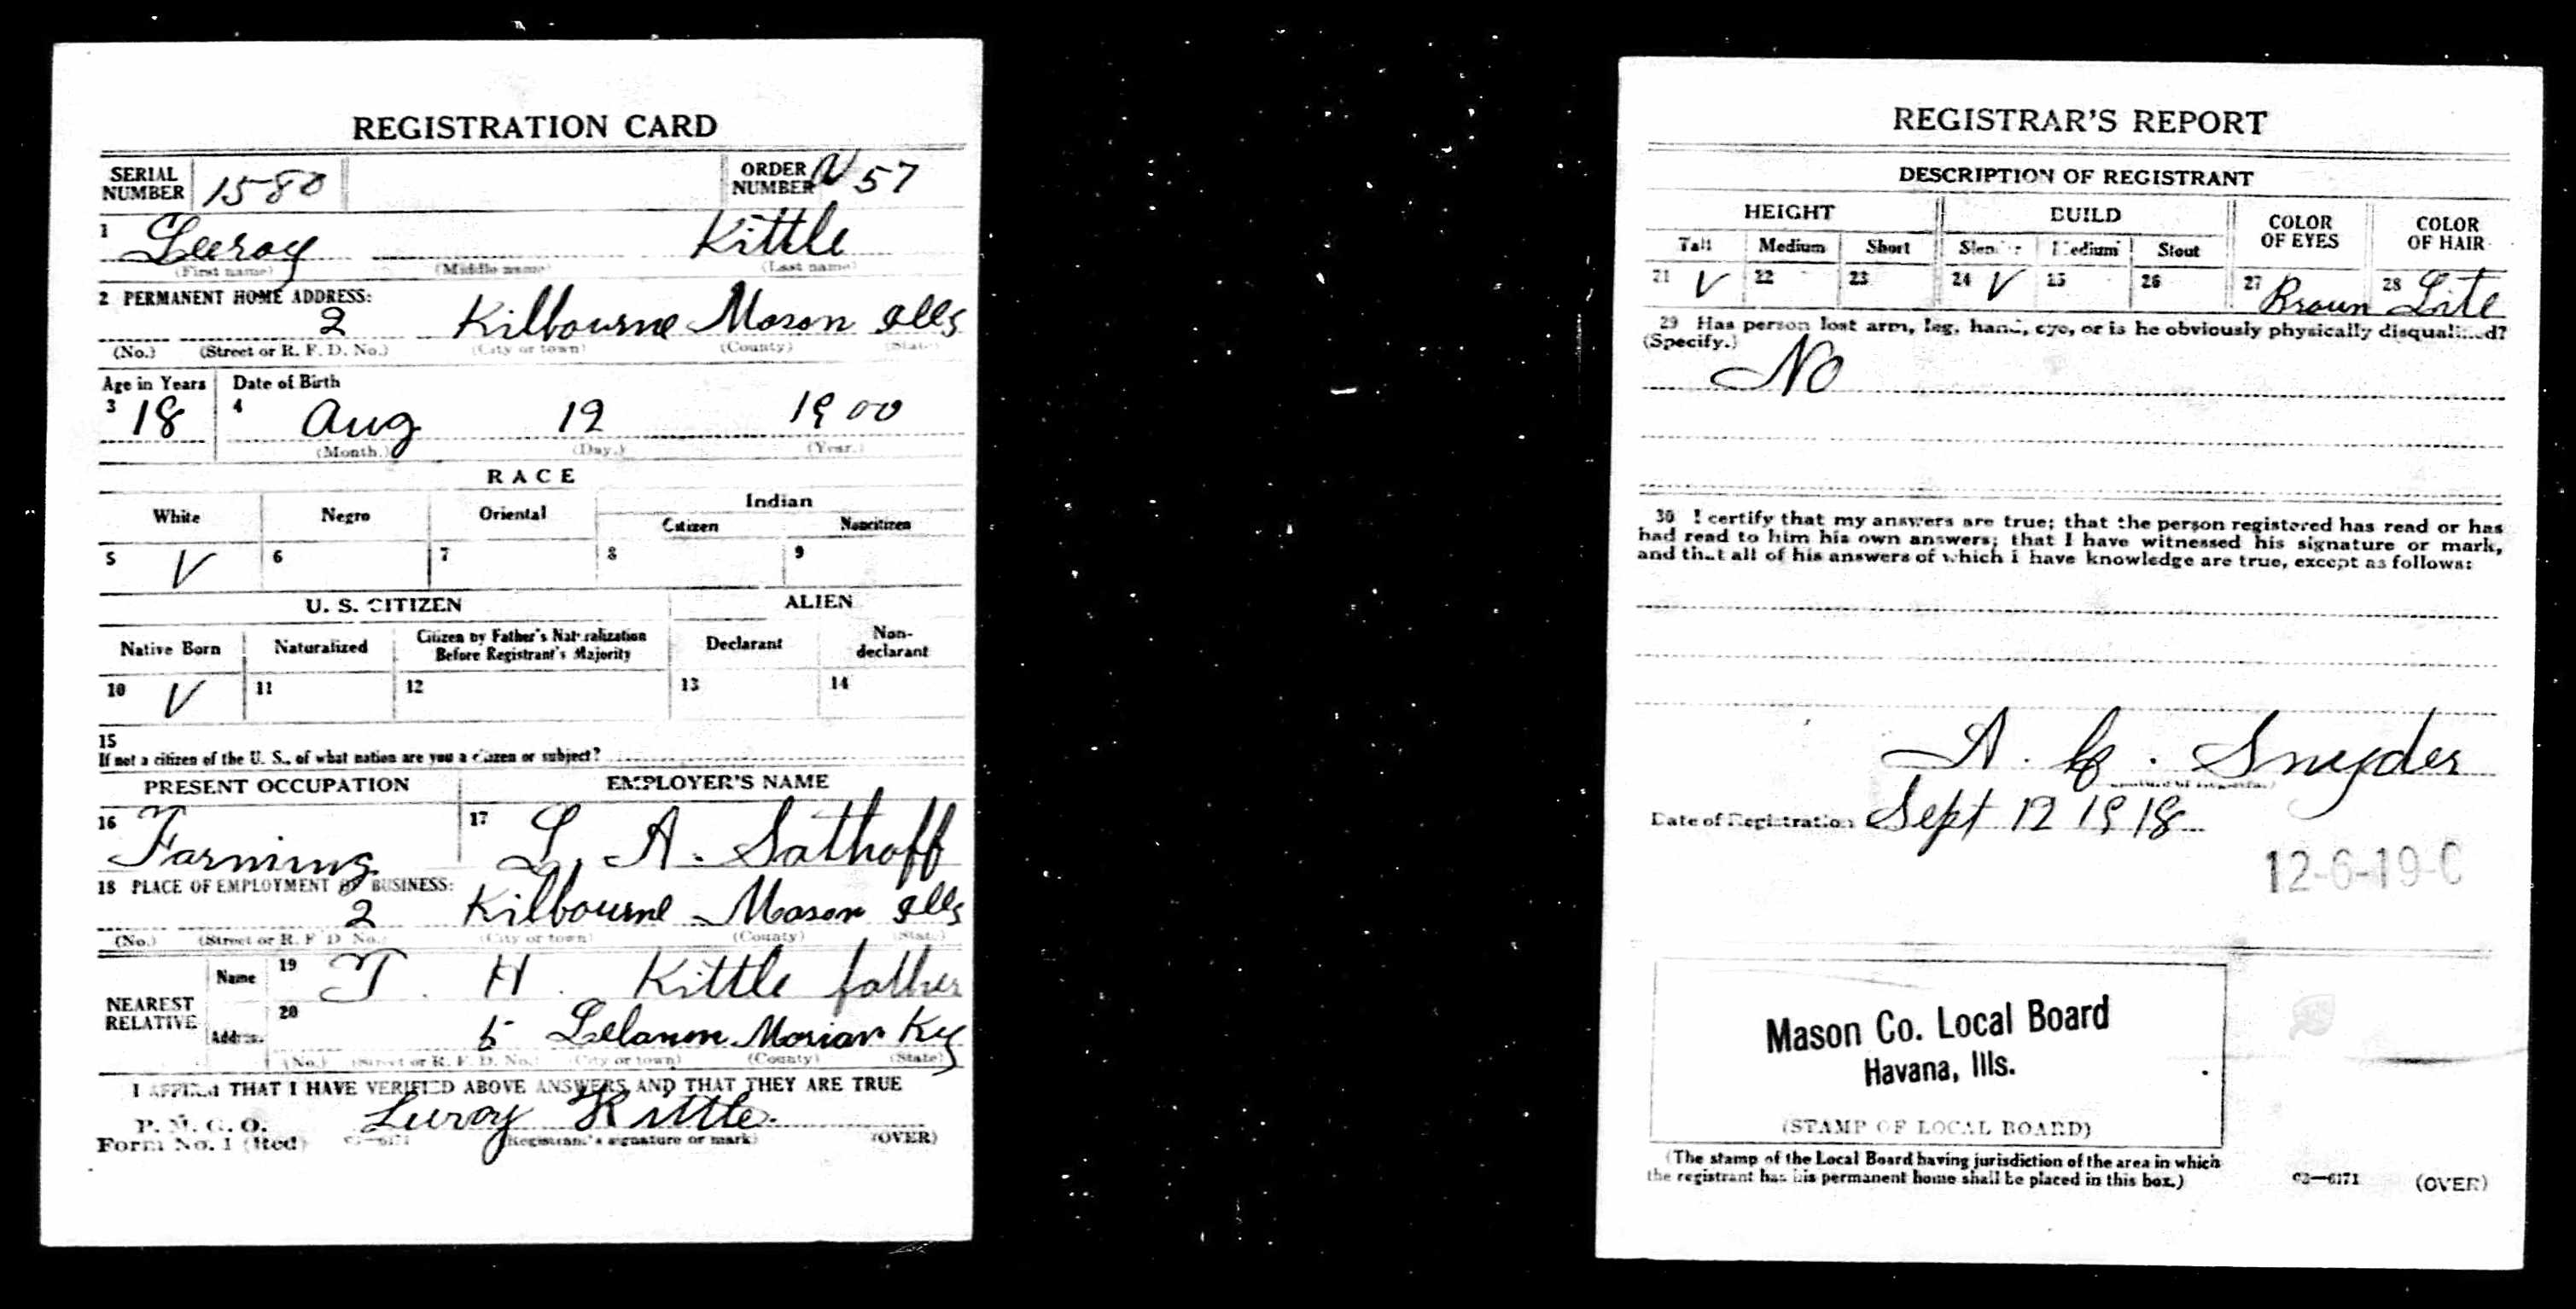 REGISTRATION CARD
SERIAL NUMBER 1580 ORDER NUMBER N 57
1 Leeroy Kittle
(First name) (Middle name) (Last name)
2 PERMANENT HOME ADDRESS:
2 Kilbourne Mason Ills
(No.) (Street or R. F. D. No.) (City or town) (County) (State)
Age in Years Date of Birth
3 18 4 Aug 12 1900
(Month.) (Day.) (Year.)
RACE
White Negro Oriental Indian
Citizen Noncitizen
5 V 6 7 8 9
U. S. CITIZEN ALIEN
Native Born Naturalized Citizen by Father's Naturalization Before Registrant's Majority Declarant Non-declarant
10 V 11 12 13 14
15
If not a citizen of the U. S., of what nation are you a citizen or subject?
PRESENT OCCUPATION EMPLOYER'S NAME
16 Farming 17 L. A. Sathoff
18 PLACE OF EMPLOYMENT OR BUSINESS:
2 Kilbourne Mason Ills
(No.) (Street or R. F. D. No.) (City or town) (County) (State)
NEAREST RELATIVE Name 19 T. H. Kittle father
Address 20 5 Lebanon Marian Ky
(No.) (Street or R. F. D. No.) (City or town) (County) (State)
I AFFIRM THAT I HAVE VERIFIED ABOVE ANSWERS AND THAT THEY ARE TRUE
P. M. G. O.
Form No. 1 (Red) 03—6171 Leeroy Kittle
(Registrant's signature or mark) (OVER)
REGISTRAR'S REPORT
DESCRIPTION OF REGISTRANT
HEIGHT BUILD COLOR OF EYES COLOR OF HAIR
Tall Medium Short Slender Medium Stout
21 V 22 23 24 V 25 26 27 Broun 28 Lite
29 Has person lost arm, leg, hand, eye, or is he obviously physically disqualified?
(Specify.)
No
30 I certify that my answers are true; that the person registered has read or has
had read to him his own answers; that I have witnessed his signature or mark,
and that all of his answers of which I have knowledge are true, except as follows:
A. C. Snyder
Date of Registration Sept 12 1918
12-6-19-C
Mason Co. Local Board
Havana, Ills.
(STAMP OF LOCAL BOARD)
(The stamp of the Local Board having jurisdiction of the area in which
the registrant has his permanent home shall be placed in this box.)
03—6171 (OVER)